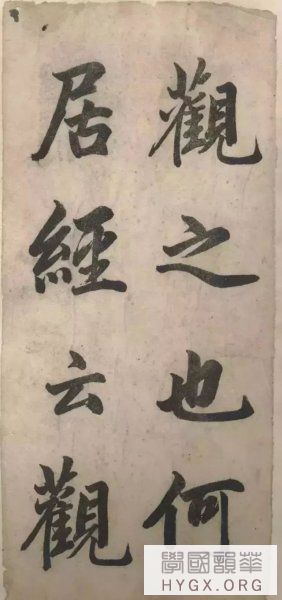 觀之也何
居經云觀
華韻國學
HYGX.ORG